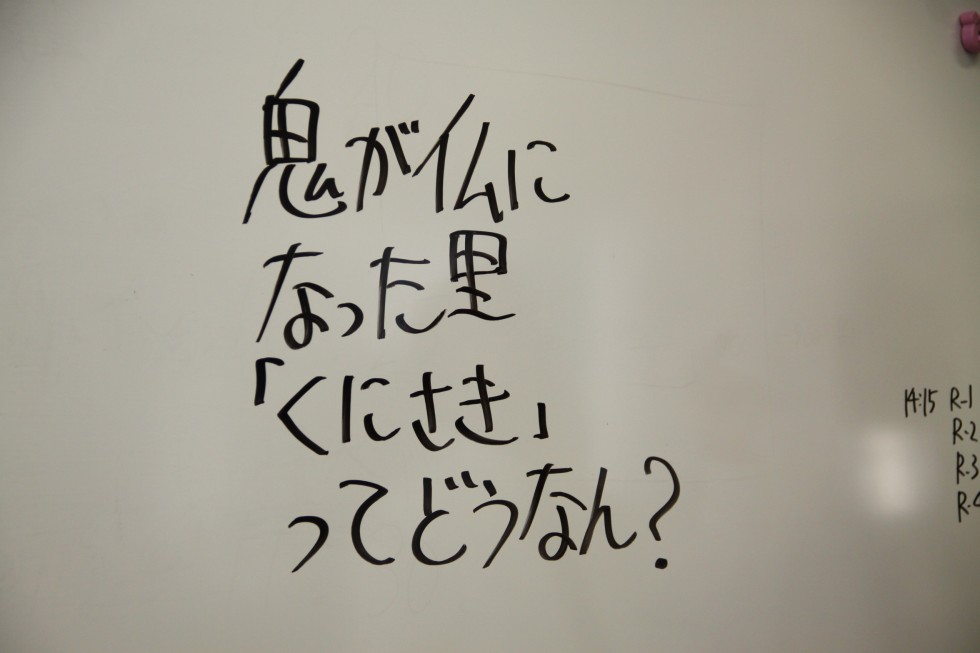 鬼が仏に
なった里
「くにさき」
ってどうなん?
14:15 R-1
R-2
R-3